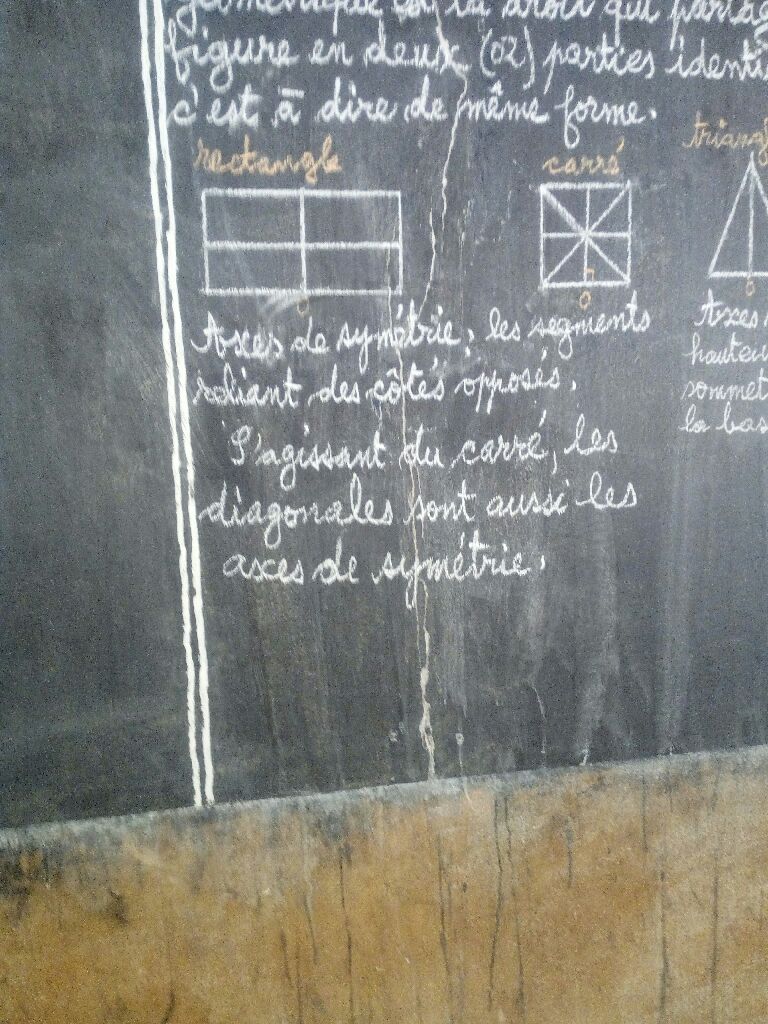 géométrique est la droit qui partag
figure en deux (02) parties identi
c'est à dire de même forme.
rectangle
carré
triang
Axes de symétrie : les segments
reliant des côtés opposés.
S'agissant du carré, les
diagonales sont aussi les
axes de symétrie.
Axes
hauteu
sommet
la bas